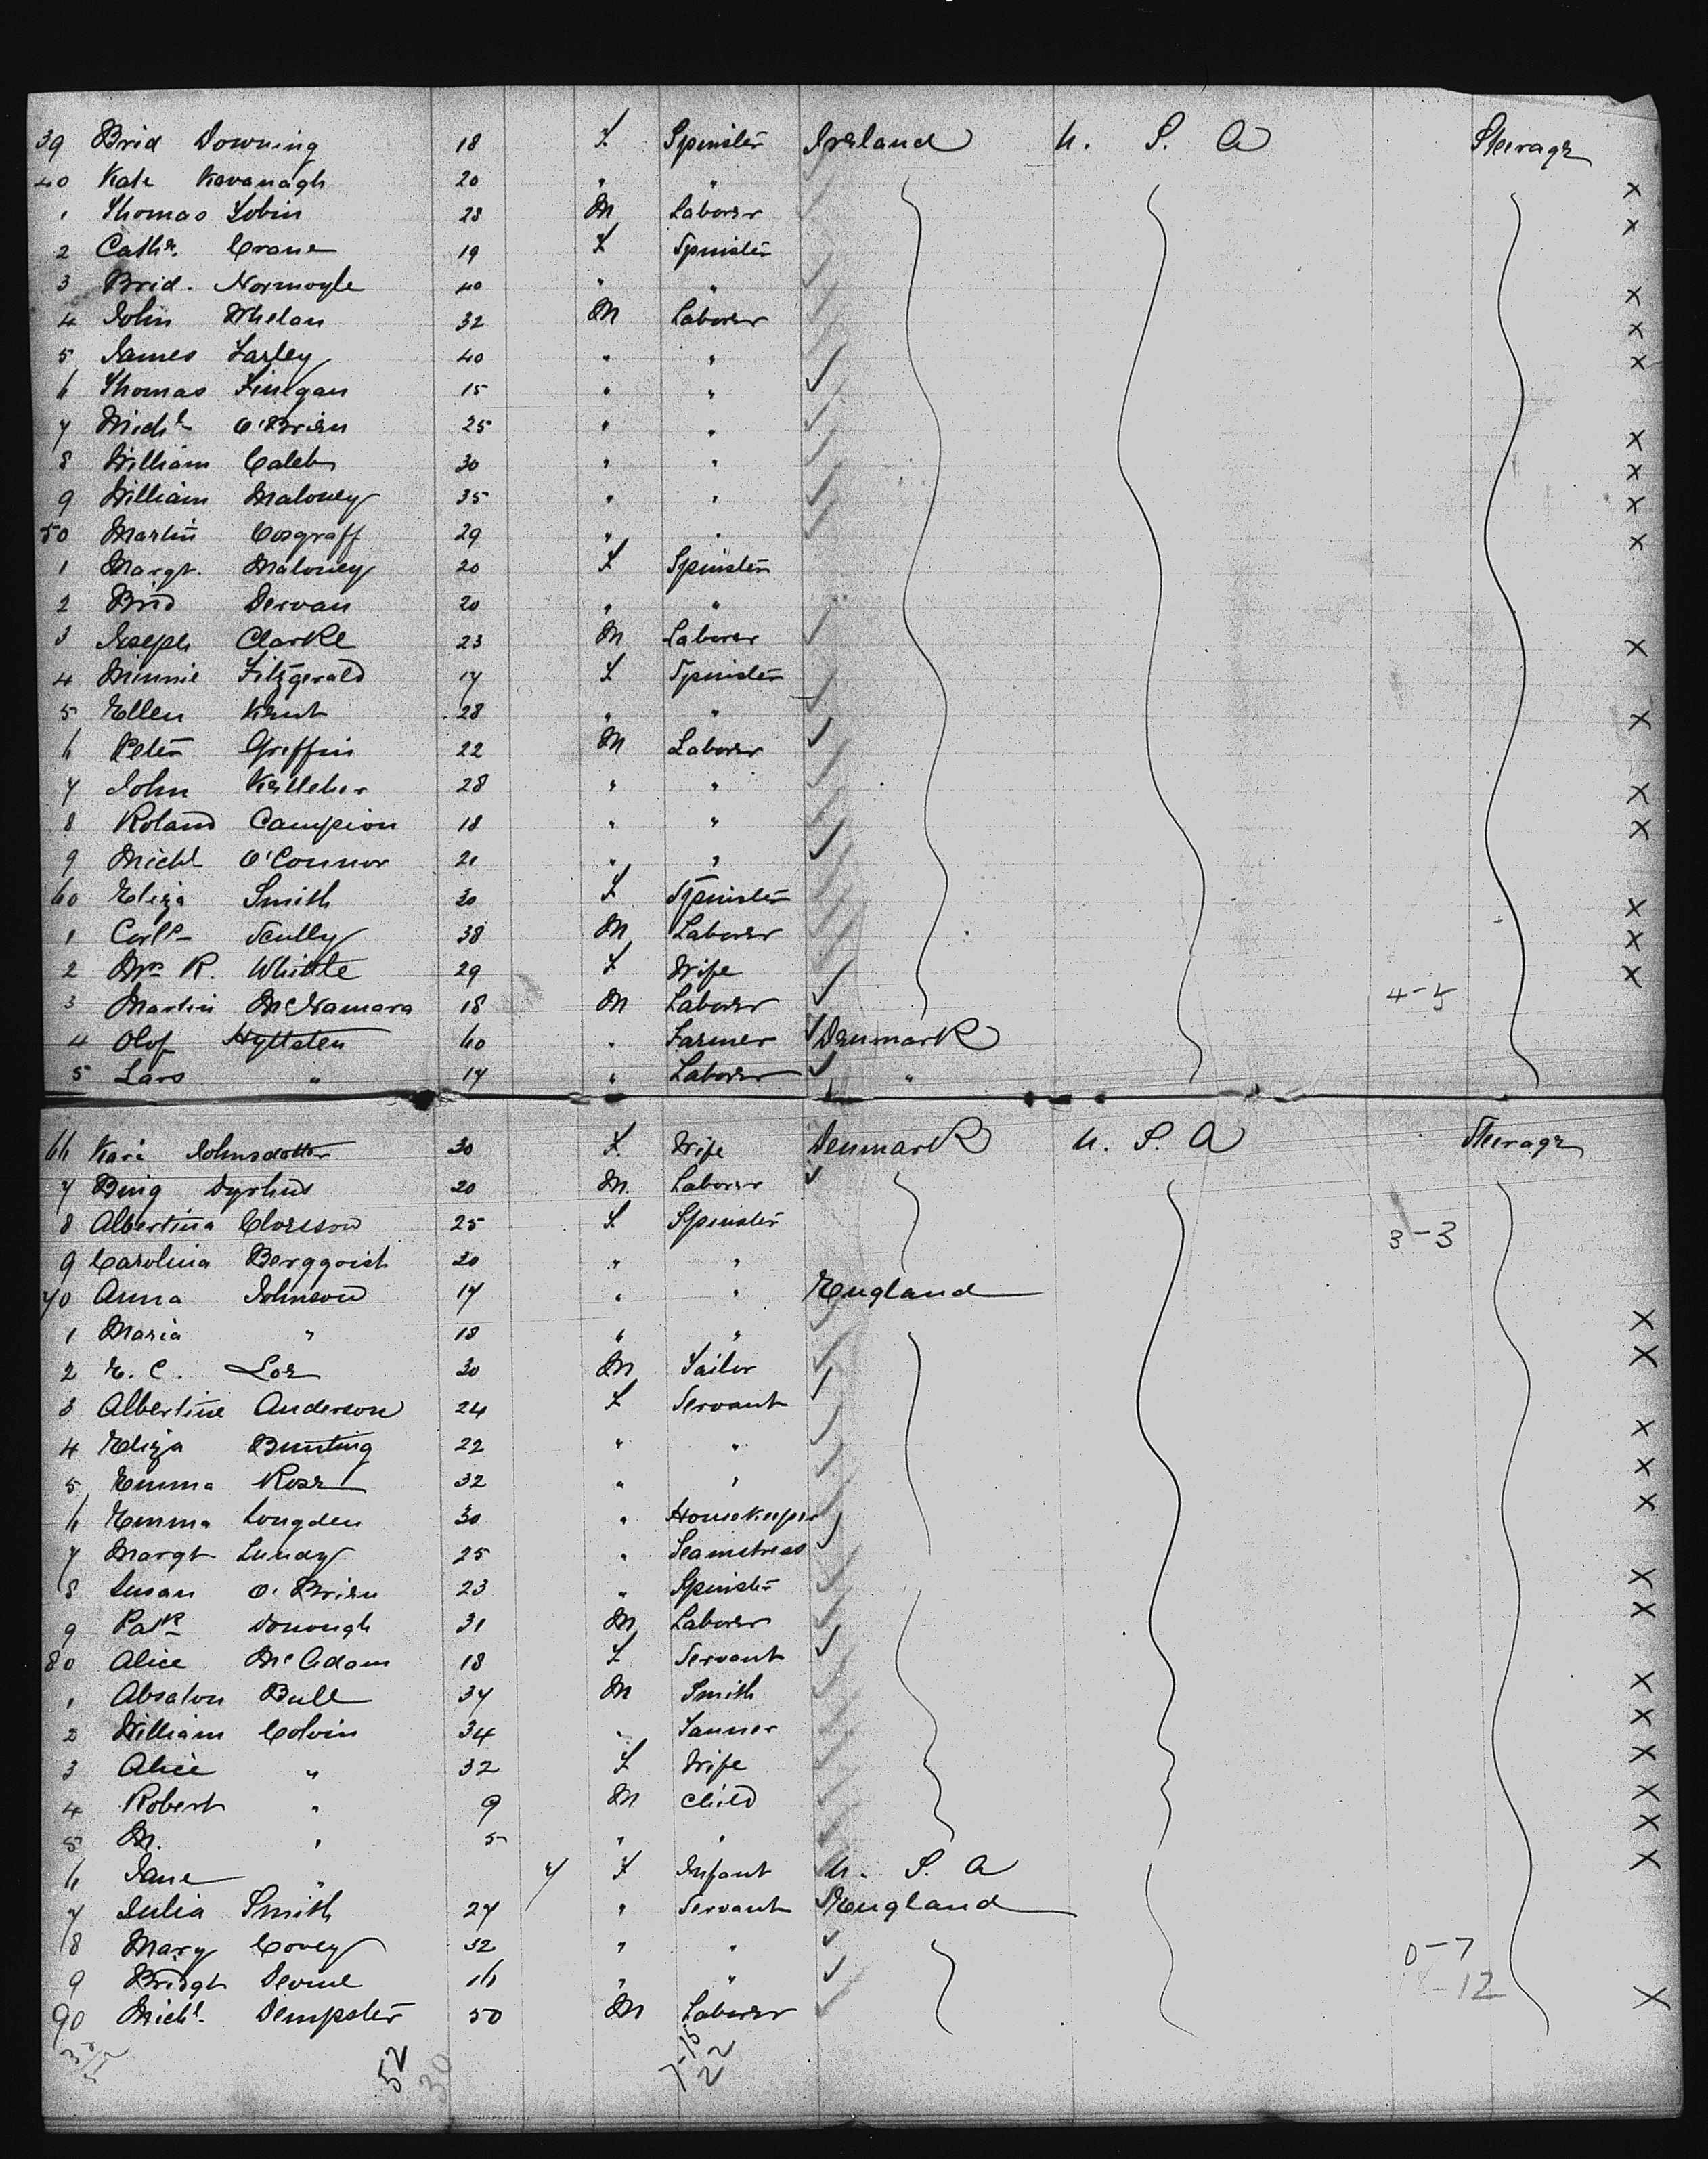 39 Brid Downing 18 F. Spinster Ireland U. S. A Steerage
40 Kate Kavanagh 20 " " X
1 Thomas Tobin 28 M Laborer X
2 Cathe. Crane 19 F Spinster
3 Brid. Normoyle 40 " " X
4 John Whelan 32 M Laborer X
5 James Farley 40 " " X
6 Thomas Finegan 15 " "
7 Michl O'Brien 25 " " X
8 William Caleb 30 " " X
9 William Maloney 35 " " X
50 Martin Cosgraff 29 " " X
1 Margt. Maloney 20 F Spinster
2 Brid Dervan 20 " "
3 Joseph Clarke 23 M Laborer X
4 Minnie Fitzgerald 17 F Spinster
5 Ellen Kent 28 " " X
6 Peter Griffin 22 M Laborer
7 John Kelleher 28 " " X
8 Roland Campion 18 " " X
9 Michl O'Connor 21 " "
60 Eliza Smith 30 F Spinster X
1 Scully 38 M Laborer X
2 Mrs R. Whittle 29 F Wife X
3 Martin McNamara 18 M Laborer 4-5
4 Olof Hyltsten 60 " Farmer Denmark
5 Lars " 17 " Laborer "
66 Kari Johnsdotter 30 F. Wife Denmark U. S. A Steerage
7 Dyrhus 20 M. Laborer
8 Albertina Clarsson 25 F. Spinster 3-3
9 Carolina Bergqvist 20 " "
70 Anna Johnson 17 " " England
1 Maria " 18 " " X
2 E. C. 30 M Tailor X
3 Albertine Anderson 24 F Servant
4 Eliza Bunting 22 " " X
5 Emma Rose 32 " " X
6 Emma Longden 30 " Housekeeper X
7 Margt Lundy 25 " Seamstress
8 Susan O'Brien 23 " Spinster X
9 Patk Donough 31 M Laborer X
80 Alice McAdam 18 F Servant
1 Absalon Bull 37 M Smith X
2 William Colvin 34 " Tanner X
3 Alice " 32 F Wife X
4 Robert " 9 M Child X
5 M. " 5 " " X
6 Jane " 7 F Infant U. S. A X
7 Julia Smith 27 " Servant England
8 Mary Covey 32 " " 0-7
9 Bridgt Devine 16 " " -12
90 Michl. Dempster 50 M Laborer X
52 30 7-15 22